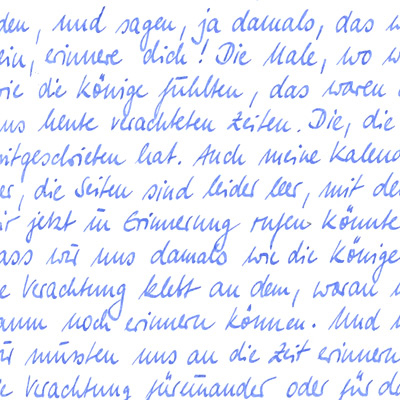 den, und sagen, ja damals, das w
ein, erinnere dich! Die Male, wo w
wie die Könige fühlten, das waren
uns heute verachteten Zeiten. Die, die
mitgeschrieben hat. Auch meine Kalend
er, die Seiten sind leider leer, mit de
ir jetzt in Erinnerung rufen könnte
ass wir uns damals wie die Könige
e Verachtung klebt an dem, woran
aum noch erinnern können. Und
wir müssten uns an die Zeit erinnern
e Verachtung füreinander oder für da